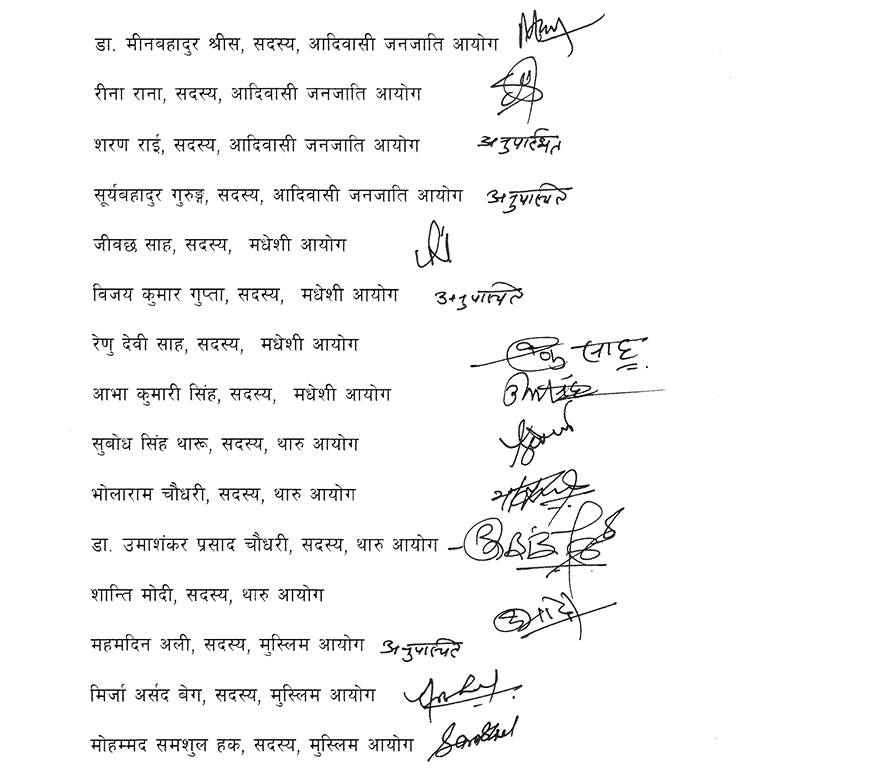 डा. मीनबहादुर श्रीस, सदस्य, आदिवासी जनजाति आयोग
रीना राना, सदस्य, आदिवासी जनजाति आयोग
शरण राई, सदस्य, आदिवासी जनजाति आयोग अनुपस्थित
सूर्यबहादुर गुरुङ्ग, सदस्य, आदिवासी जनजाति आयोग अनुपस्थित
जीवछ साह, सदस्य, मधेशी आयोग
विजय कुमार गुप्ता, सदस्य, मधेशी आयोग अनुपस्थित
रेणु देवी साह, सदस्य, मधेशी आयोग रेणु साह
आभा कुमारी सिंह, सदस्य, मधेशी आयोग
सुबोध सिंह थारू, सदस्य, थारु आयोग
भोलाराम चौधरी, सदस्य, थारु आयोग
डा. उमाशंकर प्रसाद चौधरी, सदस्य, थारु आयोग
शान्ति मोदी, सदस्य, थारु आयोग
महमदिन अली, सदस्य, मुस्लिम आयोग अनुपस्थित
मिर्जा अर्सद बेग, सदस्य, मुस्लिम आयोग
मोहम्मद समशुल हक, सदस्य, मुस्लिम आयोग